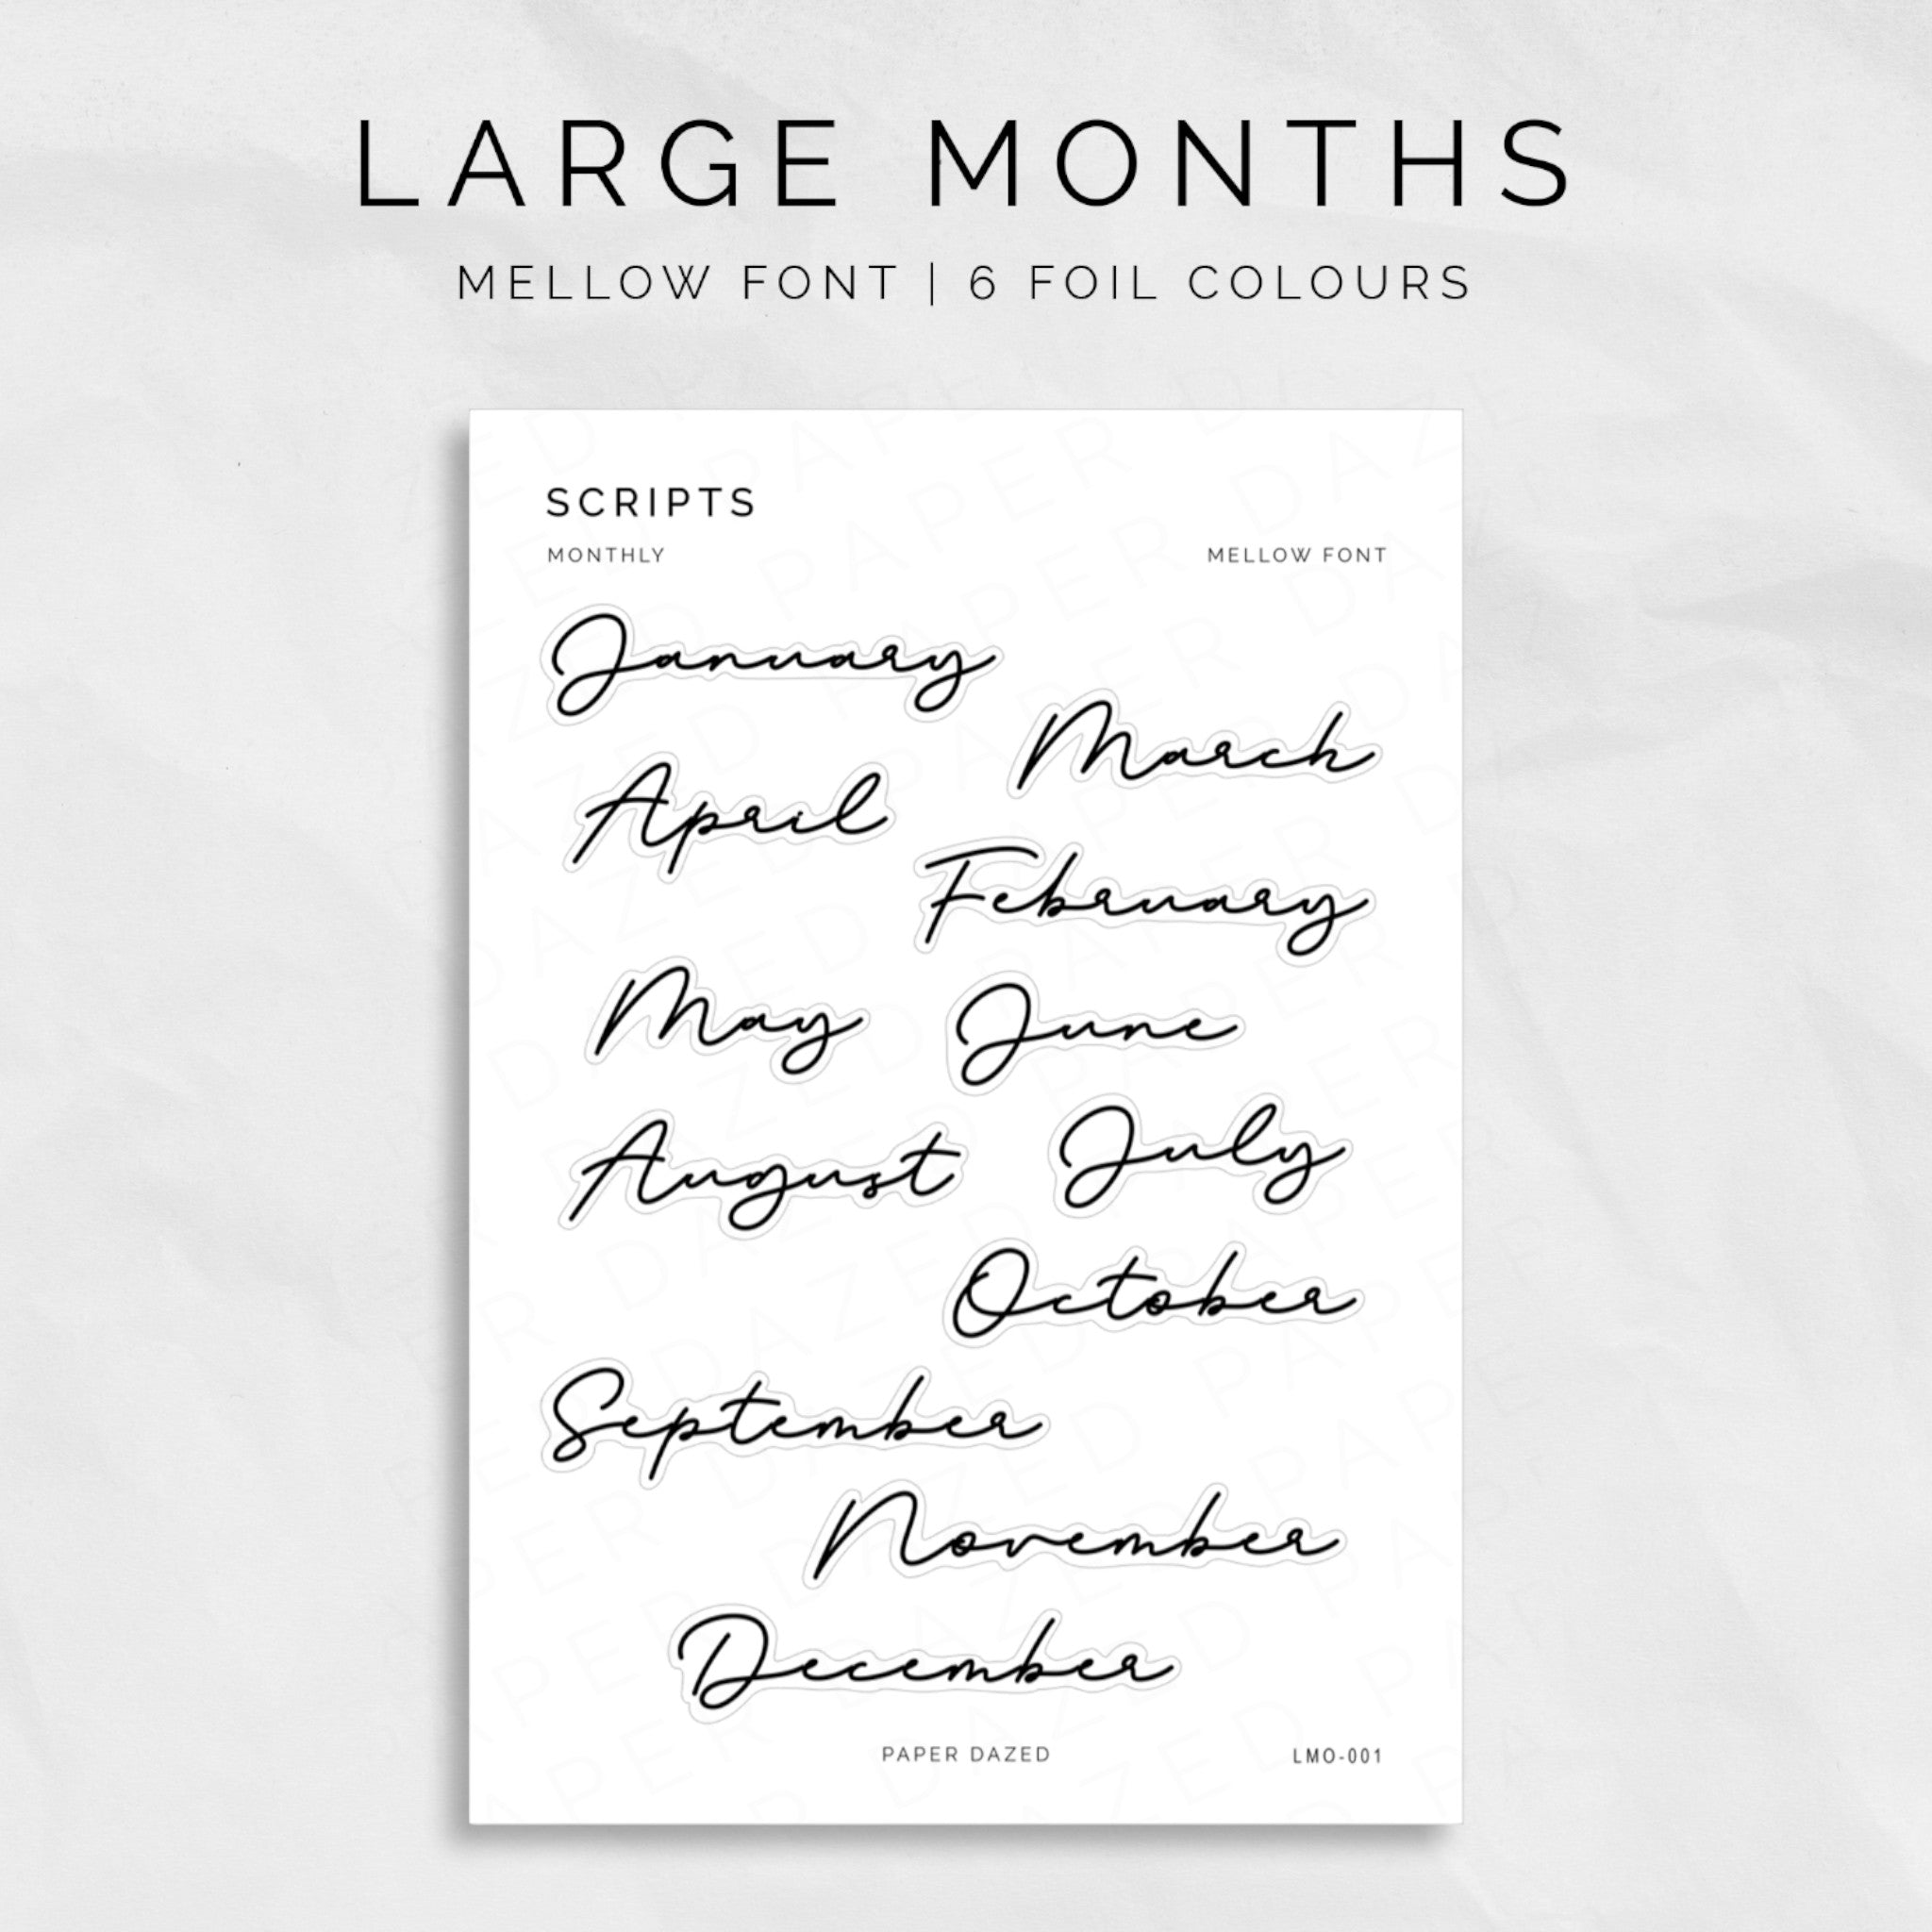 LARGE MONTHS
MELLOW FONT | 6 FOIL COLOURS
SCRIPTS
MONTHLY
MELLOW FONT
January
March
April
February
May
June
July
August
October
September
November
December
PAPER DAZED
LMO-001